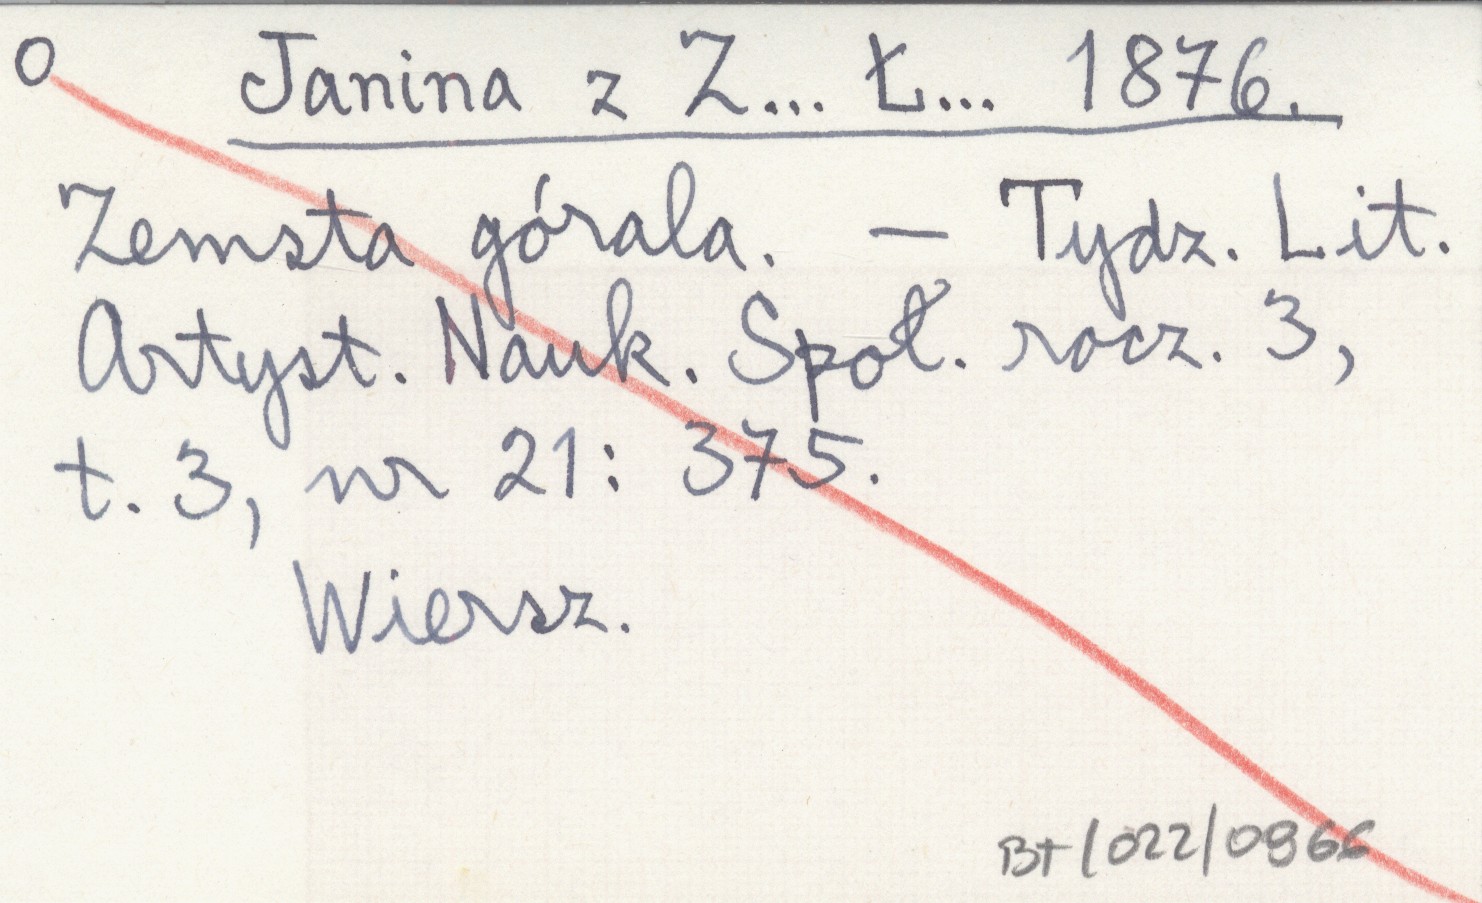 O Janina z Z... Ł... 1876.
Zemsta górala. — Tydz. Lit.
Artyst. Nauk. Społ. rocz. 3,
t. 3, nr 21: 375.
Wiersz.
BT/022/0866